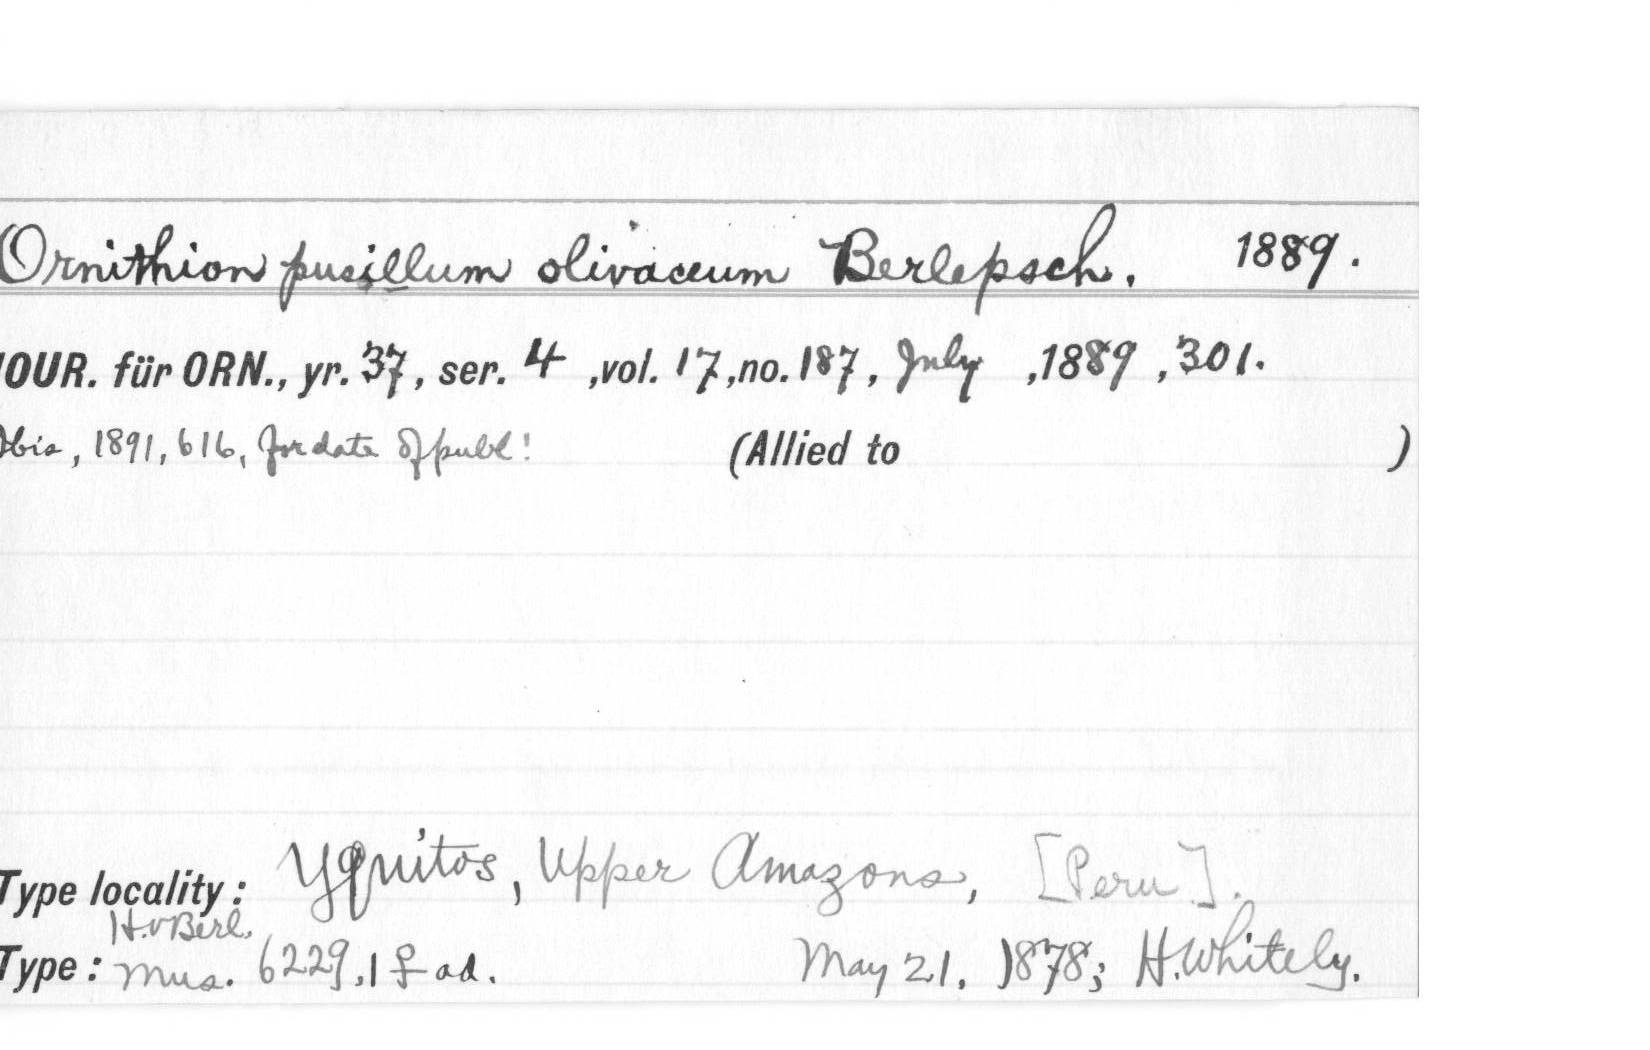 Ornithion pusillum olivaceum Berlepsch. 1889.
JOUR. für ORN., yr. 37, ser. 4 ,vol. 17,no. 187, July ,1889 ,301.
Ibis, 1891, 616, for date of publ! (Allied to )
Type locality: Yquitos, Upper Amazons, [Peru].
H.v Berl.
Type: Mus. 6229,1 ♀ ad. May 21, 1878; H. Whitely.